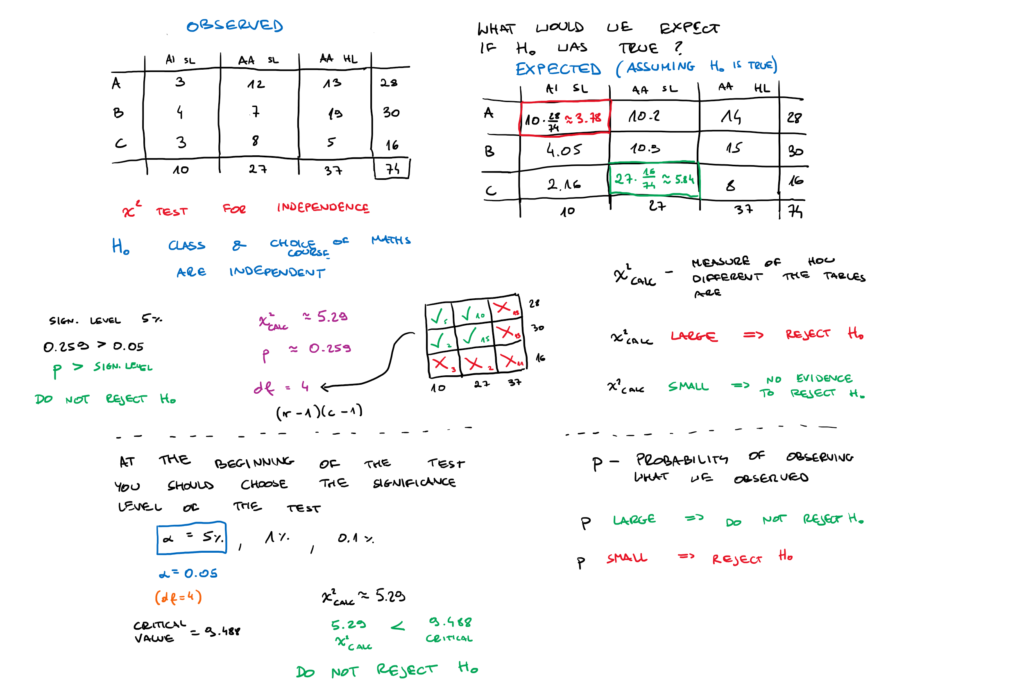 OBSERVED
AI SL AA SL AA HL
A 3 12 13 28
B 4 7 19 30
C 3 8 5 16
10 27 37 74
χ² TEST FOR INDEPENDENCE
H₀ CLASS & CHOICE OF MATHS
COURSE
ARE INDEPENDENT
WHAT WOULD WE EXPECT
IF H₀ WAS TRUE ?
EXPECTED (ASSUMING H₀ IS TRUE)
AI SL AA SL AA HL
A 10 · 28/74 ≈ 3.78 10.2 14 28
B 4.05 10.9 15 30
C 2.16 27 · 16/74 ≈ 5.84 8 16
10 27 37 74
χ²CALC – MEASURE OF HOW
DIFFERENT THE TABLES
ARE
χ²CALC LARGE => REJECT H₀
χ²CALC SMALL => NO EVIDENCE
TO REJECT H₀
SIGN. LEVEL 5%
0.259 > 0.05
P > SIGN. LEVEL
DO NOT REJECT H₀
χ²CALC ≈ 5.29
P ≈ 0.259
df = 4
(r-1)(c-1)
28
30
16
10 27 37
AT THE BEGINNING OF THE TEST
YOU SHOULD CHOOSE THE SIGNIFICANCE
LEVEL OF THE TEST
α = 5% , 1% , 0.1%
α = 0.05
(df=4)
CRITICAL
VALUE = 9.488
χ²CALC ≈ 5.29
5.29 < 9.488
χ²CALC CRITICAL
DO NOT REJECT H₀
P – PROBABILITY OF OBSERVING
WHAT WE OBSERVED
P LARGE => DO NOT REJECT H₀
P SMALL => REJECT H₀